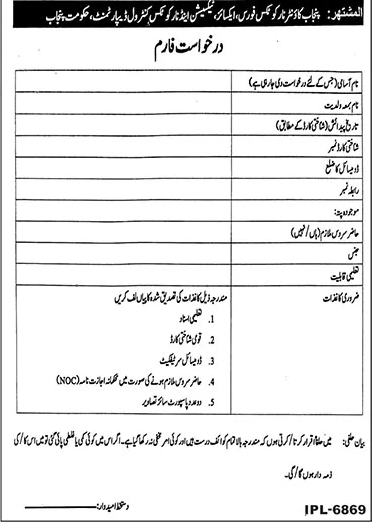 المشتہر: پنجاب کاؤنٹر نارکوٹکس فورس، ایکسائز، ٹیکسیشن اینڈ نارکوٹکس کنٹرول ڈیپارٹمنٹ، حکومت پنجاب
درخواست فارم
نام آسامی (جس کے لئے درخواست دی جارہی ہے)
نام بمعہ ولدیت
تاریخ پیدائش (شناختی کارڈ کے مطابق)
شناختی کارڈ نمبر
ڈومیسائل کا ضلع
رابطہ نمبر
موجودہ پتہ:
حاضر سروس ملازم (ہاں/نہیں)
جنس
تعلیمی قابلیت
ضروری کاغذات
مندرجہ ذیل کاغذات کی تصدیق شدہ کاپیاں لف کریں
1. تعلیمی اسناد
2. قومی شناختی کارڈ
3. ڈومیسائل سرٹیفکیٹ
4. حاضر سروس ملازم ہونے کی صورت میں محکمانہ اجازت نامہ (NOC)
5. دو عدد پاسپورٹ سائز تصاویر
بیان حلفی: میں حلفاً اقرار کرتا/کرتی ہوں کہ مندرجہ بالا تمام کوائف درست ہیں اور کوئی امر مخفی نہ رکھا گیا ہے۔ اگر اس میں کوئی کمی یا غلطی پائی گئی تو میں اس کا/کی
ذمہ دار ہوں گا/گی۔
دستخط امیدوار:
IPL-6869